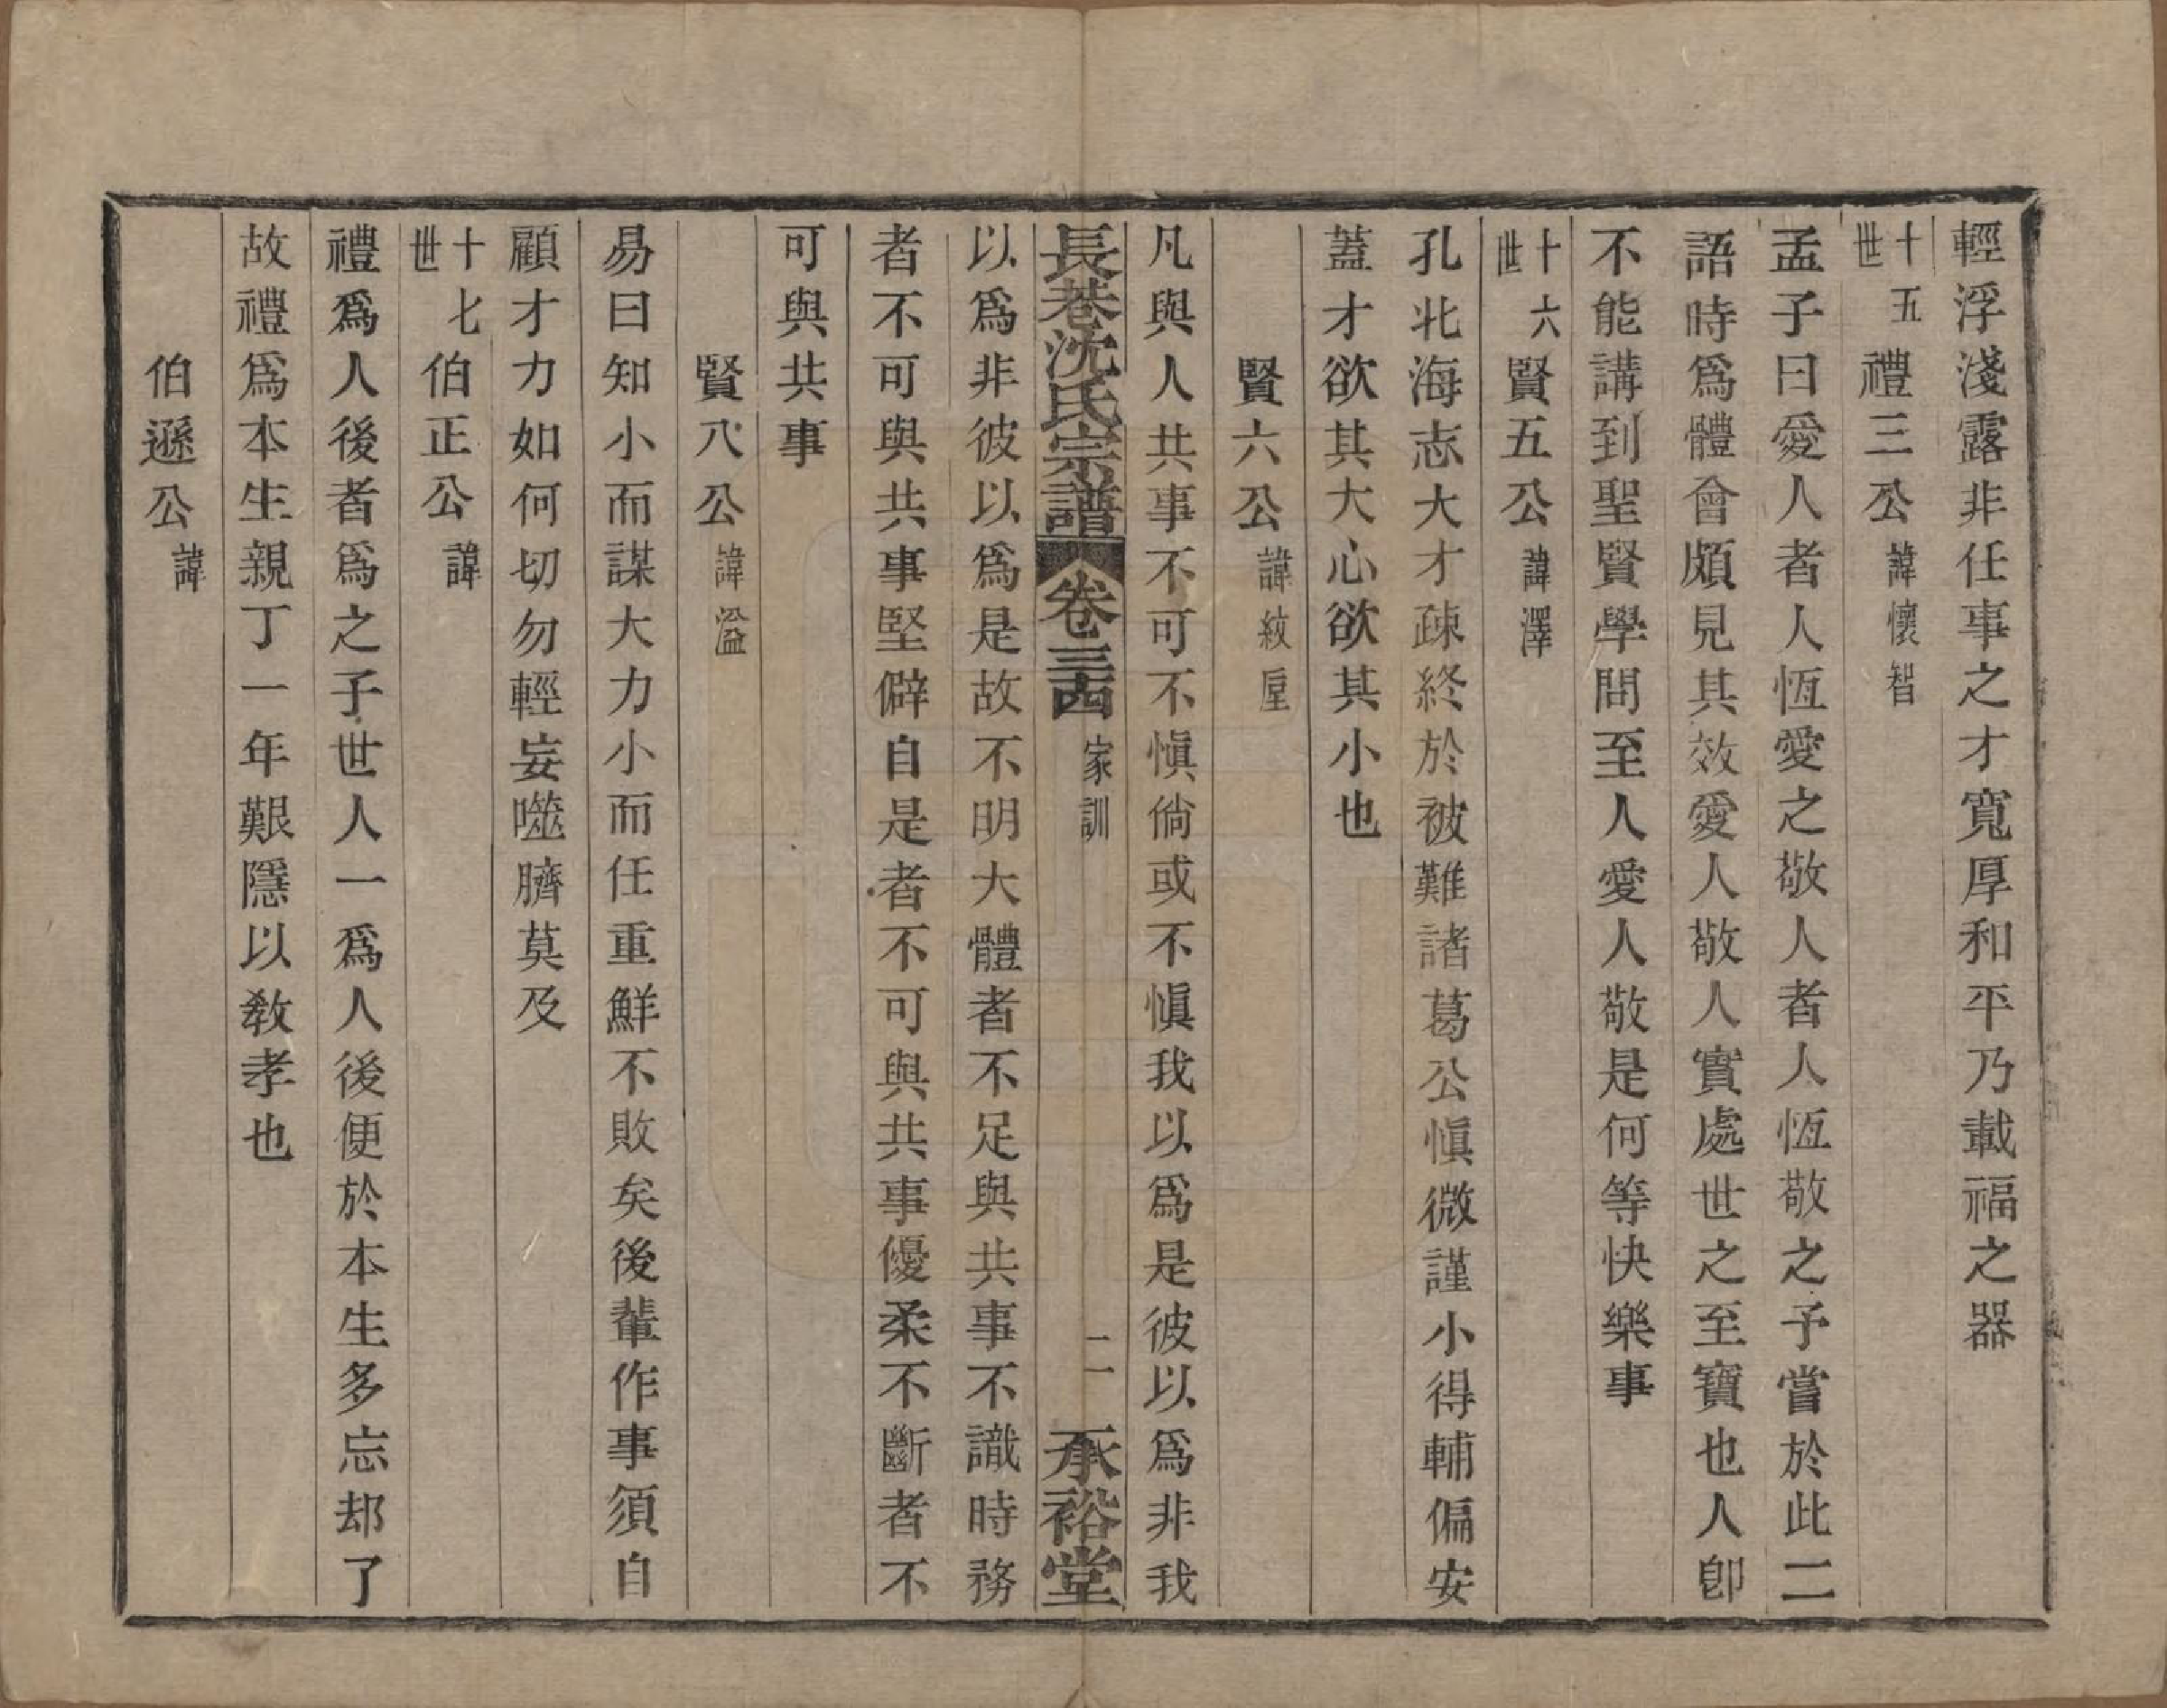 輕浮淺露非任事之才寬厚和平乃載福之器
十五世　禮三公 諱懷智
孟子曰愛人者人恆愛之敬人者人恆敬之予嘗於此二
語時爲體會頗見其效愛人敬人實處世之至寶也人卽
不能講到聖賢學問至人愛人敬是何等快樂事
十六世　賢五公 諱澤
孔北海志大才疎終於被難諸葛公愼微謹小得輔偏安
蓋才欲其大心欲其小也
賢六公 諱紋
凡與人共事不可不愼倘或不愼我以爲是彼以爲非我
長巷沈氏宗譜 卷三四 家訓 二 承裕堂
以爲非彼以爲是故不明大體者不足與共事不識時務
者不可與共事堅僻自是者不可與共事優柔不斷者不
可與共事
賢八公 諱溢
易曰知小而謀大力小而任重鮮不敗矣後輩作事須自
顧才力如何切勿輕妄噬臍莫及
十七世　伯正公 諱
禮爲人後者爲之子世人一爲人後便於本生多忘却了
故禮爲本生親丁一年艱隱以敎孝也
伯遜公 諱